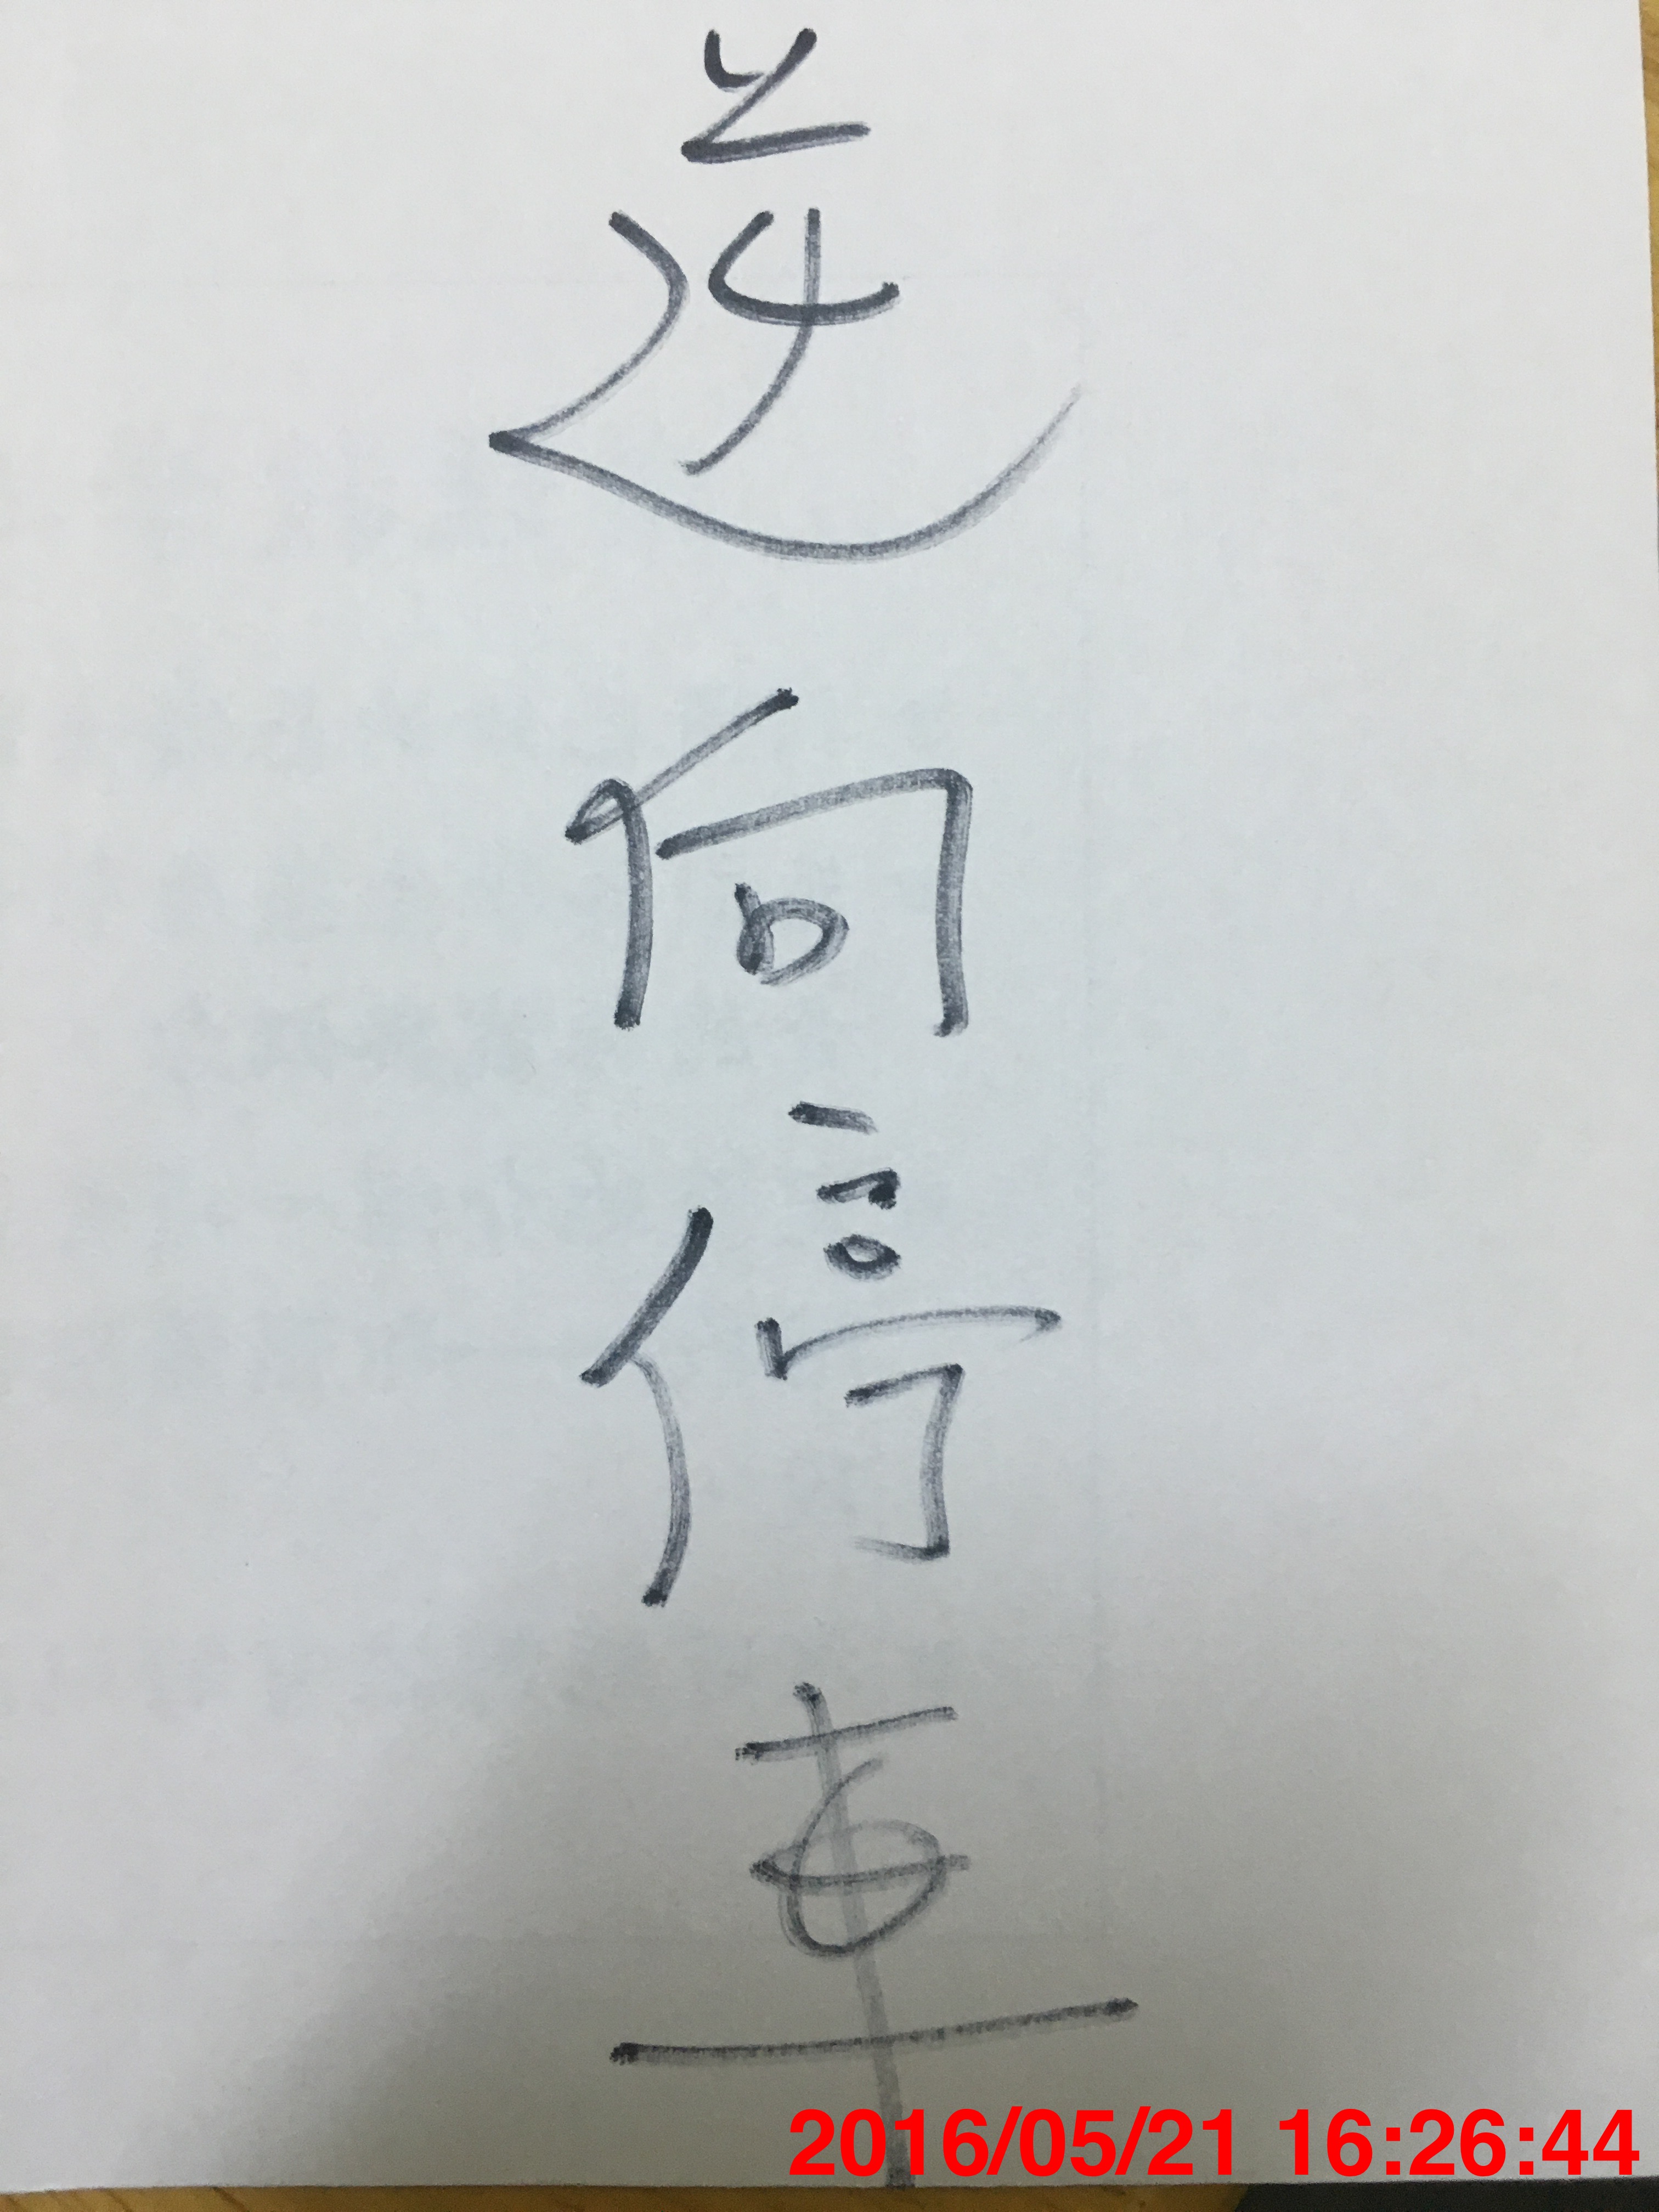 逆向停車
2016/05/21 16:26:44